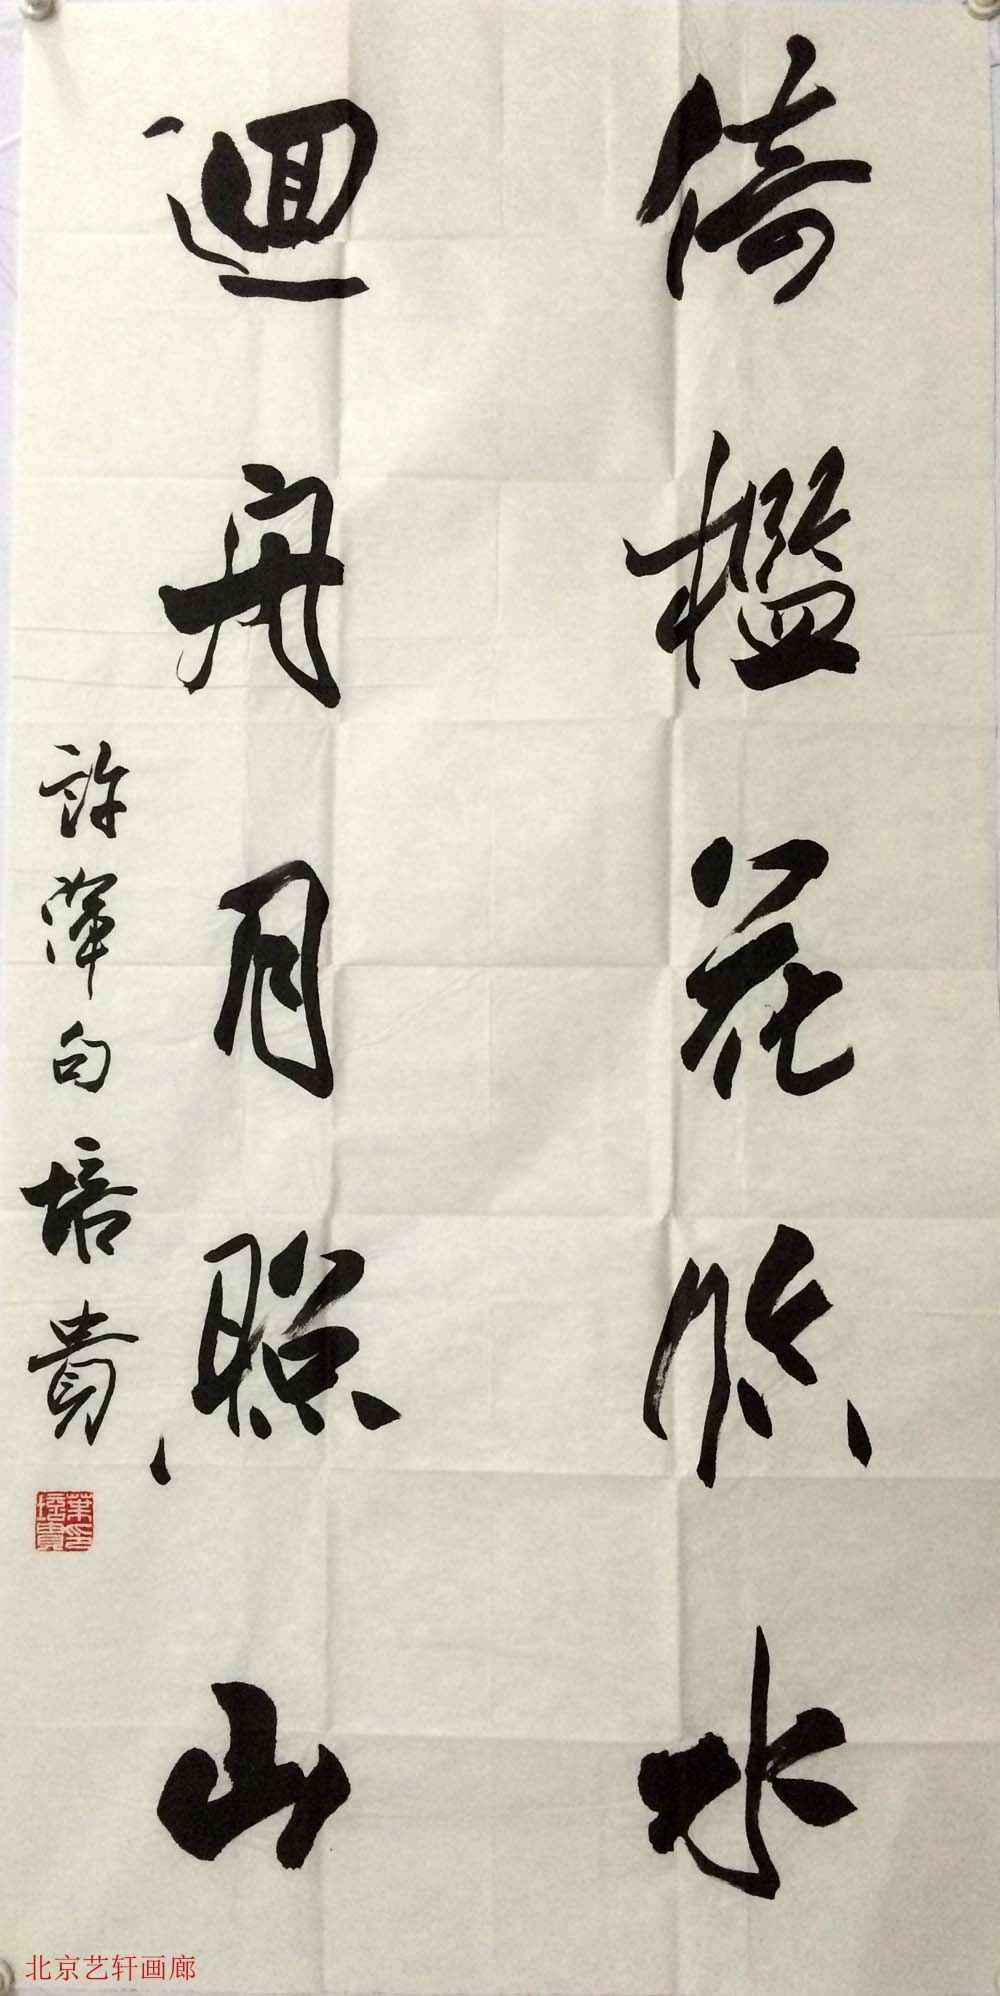 倚檻花臨水
迴舟月照山
許渾句培貴
葉培貴印
北京艺轩画廊